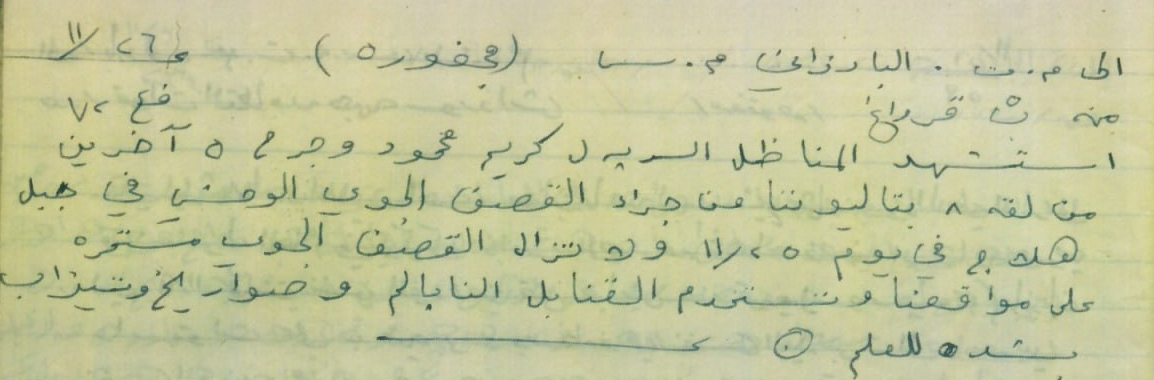 الى م. ت. البارزاني م. س (مخفوره) في ١١/٢٦
من ت قرداغ ع ٧٢
استشهد المناضل السريه ل كريم محمود وجرح ٥ آخرين
من لقه ٨ بتاليوننا من جراء القصف الجوي الوحشي في جبل
هلدج في يوم ١١/٢٥ ولا تزال القصف الجوي مستمره
على مواقعنا وتستخدم القنابل النابالم وصواريخ وتيزاب
بشده للعلم